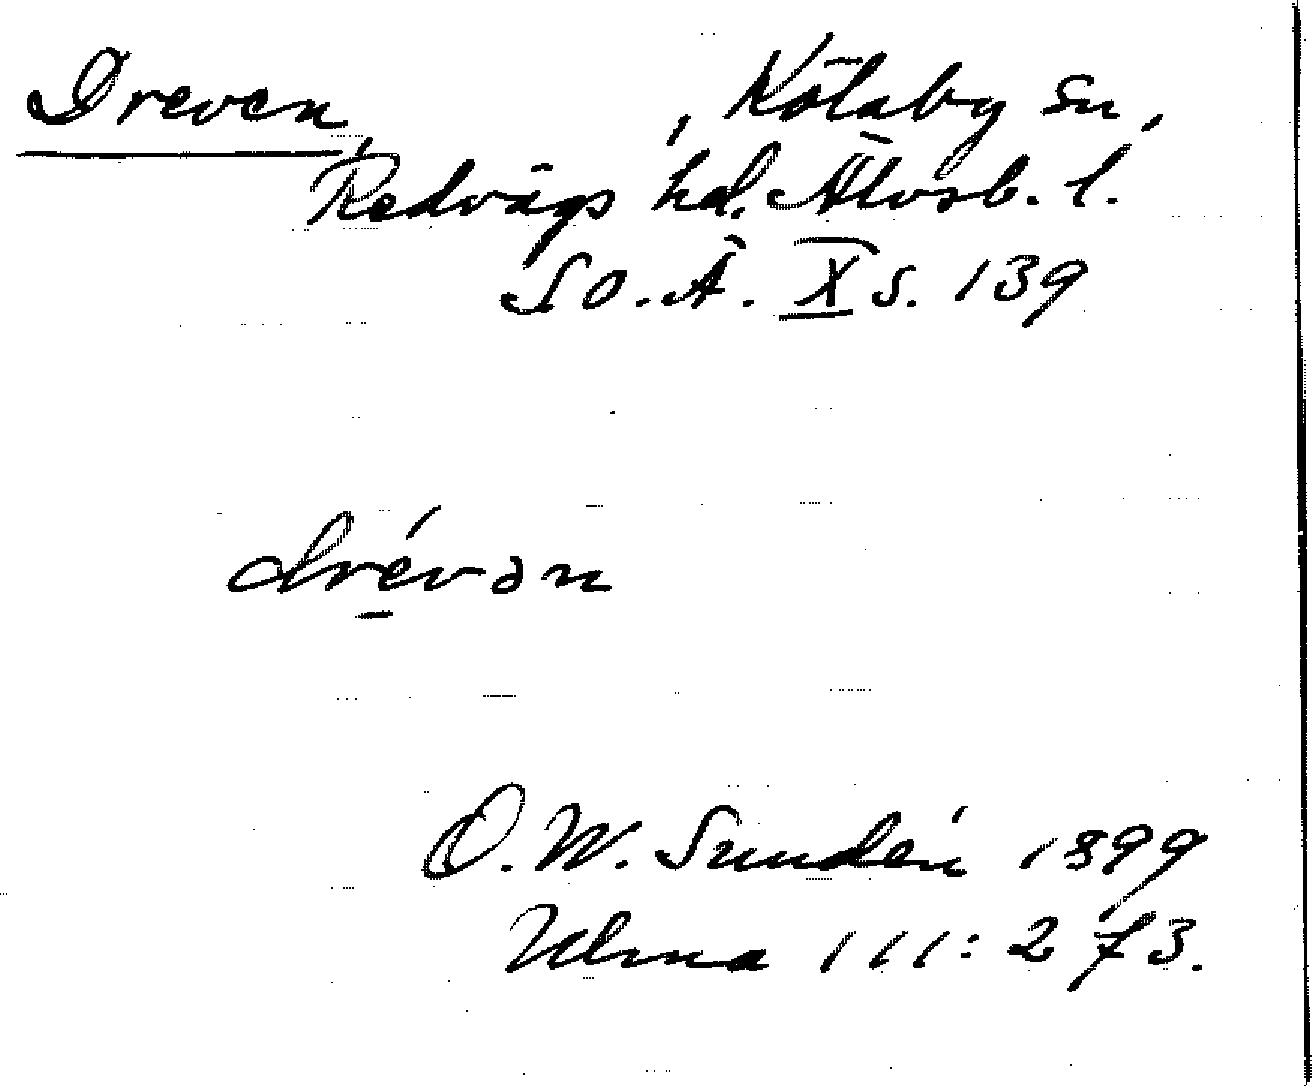 Dreven, , Kölaby sn,
Redvägs hd. Älvsb. l.
SO.Ä. X s. 139
drévən
O. W. Sundén 1899
Ulma 111: 273.